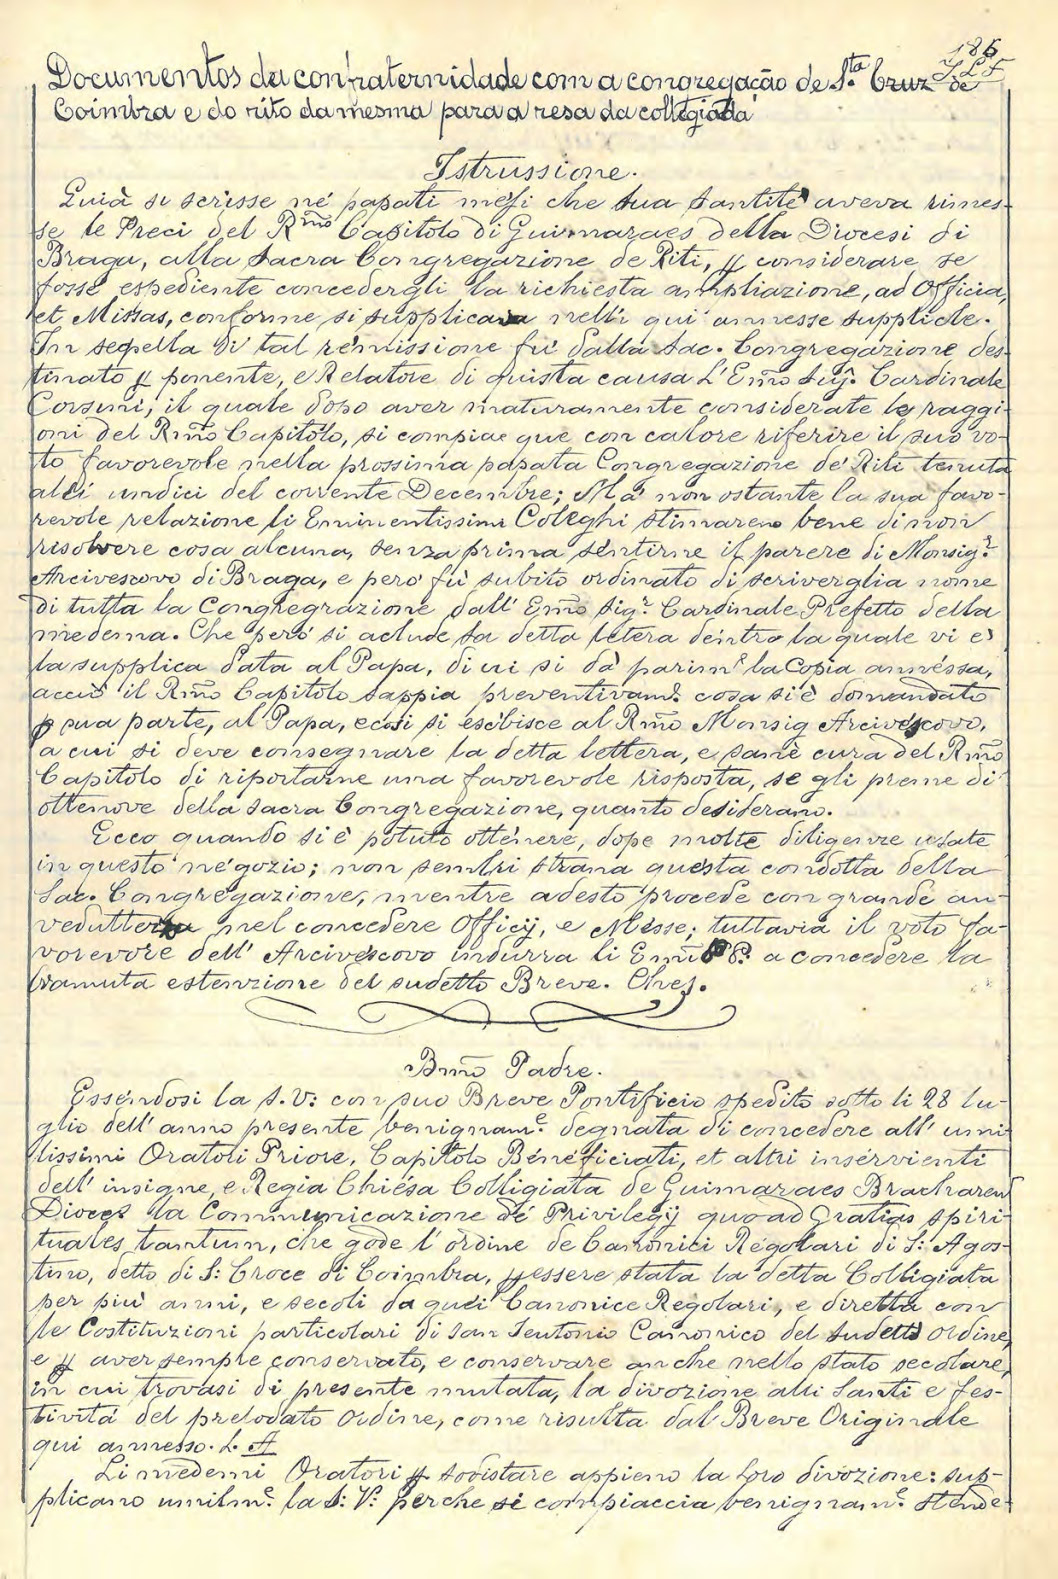 186
J. L. F.
Documentos da confraternidade com a congregação de S.ta Cruz de
Coimbra e do rito da mesma para a resa da collegiada
Istrussione.
Guià si scrisse né papati mesi che Sua Santità aveva rimes-
se le Preci del Rm̃o Capitolo di Guimaraes della Diocesi di
Braga, alla Sacra Congregazione de Riti, p considerare se
fosse espediente concedergli la richiesta ampliazione, ad Officia,
et Missas, conforme si supplicava nelli qui annesse suppliche.
In sequella di tal remissione fù dalla Sac. Congregazione des-
tinato p ponente, e Relatore di quista causa L'Em̃o Sig.r Cardinale
Corsini, il quale dopo aver maturamente considerate les raggi-
oni del Rm̃o Capitolo, si compiae que con calore riferire il suo vo-
to favorevole nella prossima papata Congregazione de Riti tenuta
alli undici del corrente Decembre; Ma non ostante la sua favo-
revole relazione li Eminentissimi Coleghi stimareno bene di non
risolvere cosa alcuna, senza prima sentirne il parere di Monsig.r
Arcivescovo di Braga, e però fù subito ordinato di scriverglia nome
di tutta la Congregrazione dall' Em̃o Sig.r Cardinale Prefetto della
medema. Che però si aclude la detta letera dentro la quale vi e
la supplica data al Papa, di cui si dà parim.e la Copia annessa,
acciò il Rm̃o Capitolo sappia preventivam.e cosa si è domandato
p sua parte, al Papa, e cosi si esebisce al Rm̃o Monsig Arcivescovo,
a cui si deve consegnare la detta lettera, e sanè cura del Rm̃o
Capitolo di riportarne una favorevole risposta, se gli preme di
ottenove della Sacra Congregazione, quanto desiderano.
Ecco quando si è potuto ottenere, dope molte diligenze usate
in questo negozio; non sembri strana questa condotta della
Sac. Congregazione, mentre adesto procede con grande au-
vedutterza nel concedere Officij, e Messe; tuttavia il voto fa-
vorevore dell' Arcivescovo indurra li Em̃i P. P. a concedere la
bramuta estenzione del sudetto Breve. Ches.
Bm̃o Padre.
Essendosi la S. V: con suo Breve Pontificio spedito sotto li 28 lu-
glio dell' anno presente benignam.e degnata di concedere all' umi-
lissimi Oratori Priore, Capitolo Beneficiati, et altri inservienti
dell' insigne, e Regia Chiesa Colligiata de Guimaraes Bracharen
Dioces la Communicazione de Privilegij quoad Gratias spiri-
tuales tantum, che gode l'ordine de Canonici Regolari di S: Agos-
tino, detto di S: Croce di Coimbra, p essere stata la detta Colligiata
per più anni, e secoli da quei Canonice Regolari, e diretta con
le Costituzioni particolari di San Teutonio Canonico del Sudetto Ordine,
e p aver sempre conservato, e conservare anche nello stato secolare,
in cui trovasi di presente mutata, la divozione alli Santi e fes-
tività del prelodato Ordine, come risulta dal Breve Originale
qui annesso. L. A
Li medemi Oratori p sodistare appieno la loro divozione: sup-
plicano umilm.e la S: V: perche si compiaccia benignam.e stende-